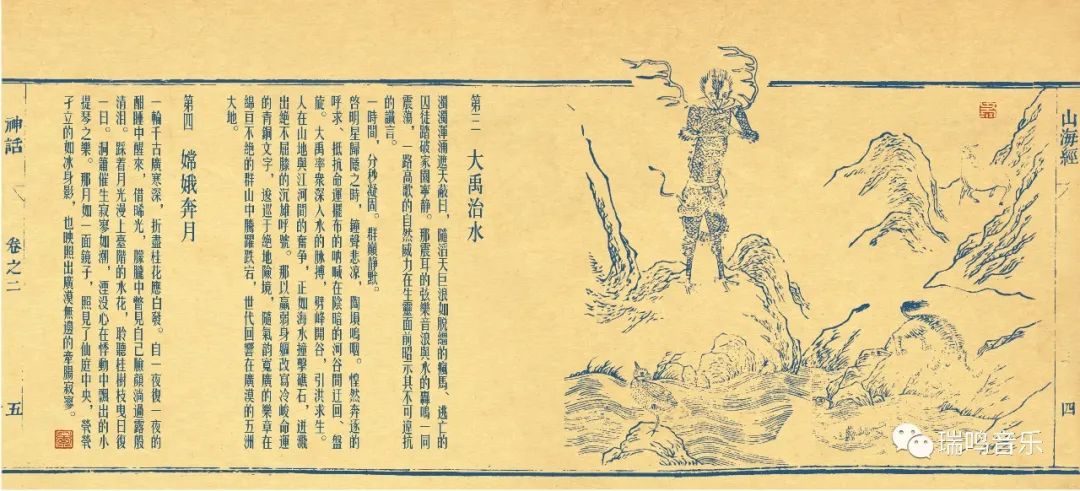 山海經
四
第三　大禹治水
濁濁渾涌遮天蔽日，隨滔天巨浪如脱繮的瘋馬、逃亡的
囚徒踏破家園寧静。那震耳的弦樂音浪與水的轟鳴一同
震蕩，一路高歌的自然威力在生靈面前昭示其不可違抗
的讖言。
一時間，分秒凝固。群巔静默。
啓明星歸隱之時，鐘聲悲凉，陶塤嗚咽。惶然奔逐的
呼求、抵抗命運擺布的吶喊在陰暗的河谷間迂回、盤
旋。大禹率衆深入水的脉搏，劈峰開谷，引洪求生。
人在山地與江河間的奮争，正如海水撞擊礁石，迸濺
出絶不屈膝的沉雄呼號。那以羸弱身軀改寫冷峻命運
的青銅文字，逡巡于絶地險境，隨氣韵寬廣的樂章在
綿亘不絶的群山中騰躍跌宕，世代回響在廣漠的五洲
大地。
第四　嫦娥奔月
一輪千古廣寒深，折盡桂花應白發。自一夜復一夜的
酣睡中醒來，借晞光，朦朧中瞥見自己臉頰淌過露般
清泪。踩着月光漫上臺階的水花，聆聽桂樹枝曳日復
一日。洞簫催生寂寥如潮，湮没心在悸動中飄出的小
提琴之樂。那月如一面鏡子，照見了仙庭中央，煢煢
孑立的如冰身影，也映照出廣漠無邊的牽腸寂寥。
神話
卷之二
五
瑞鸣音乐